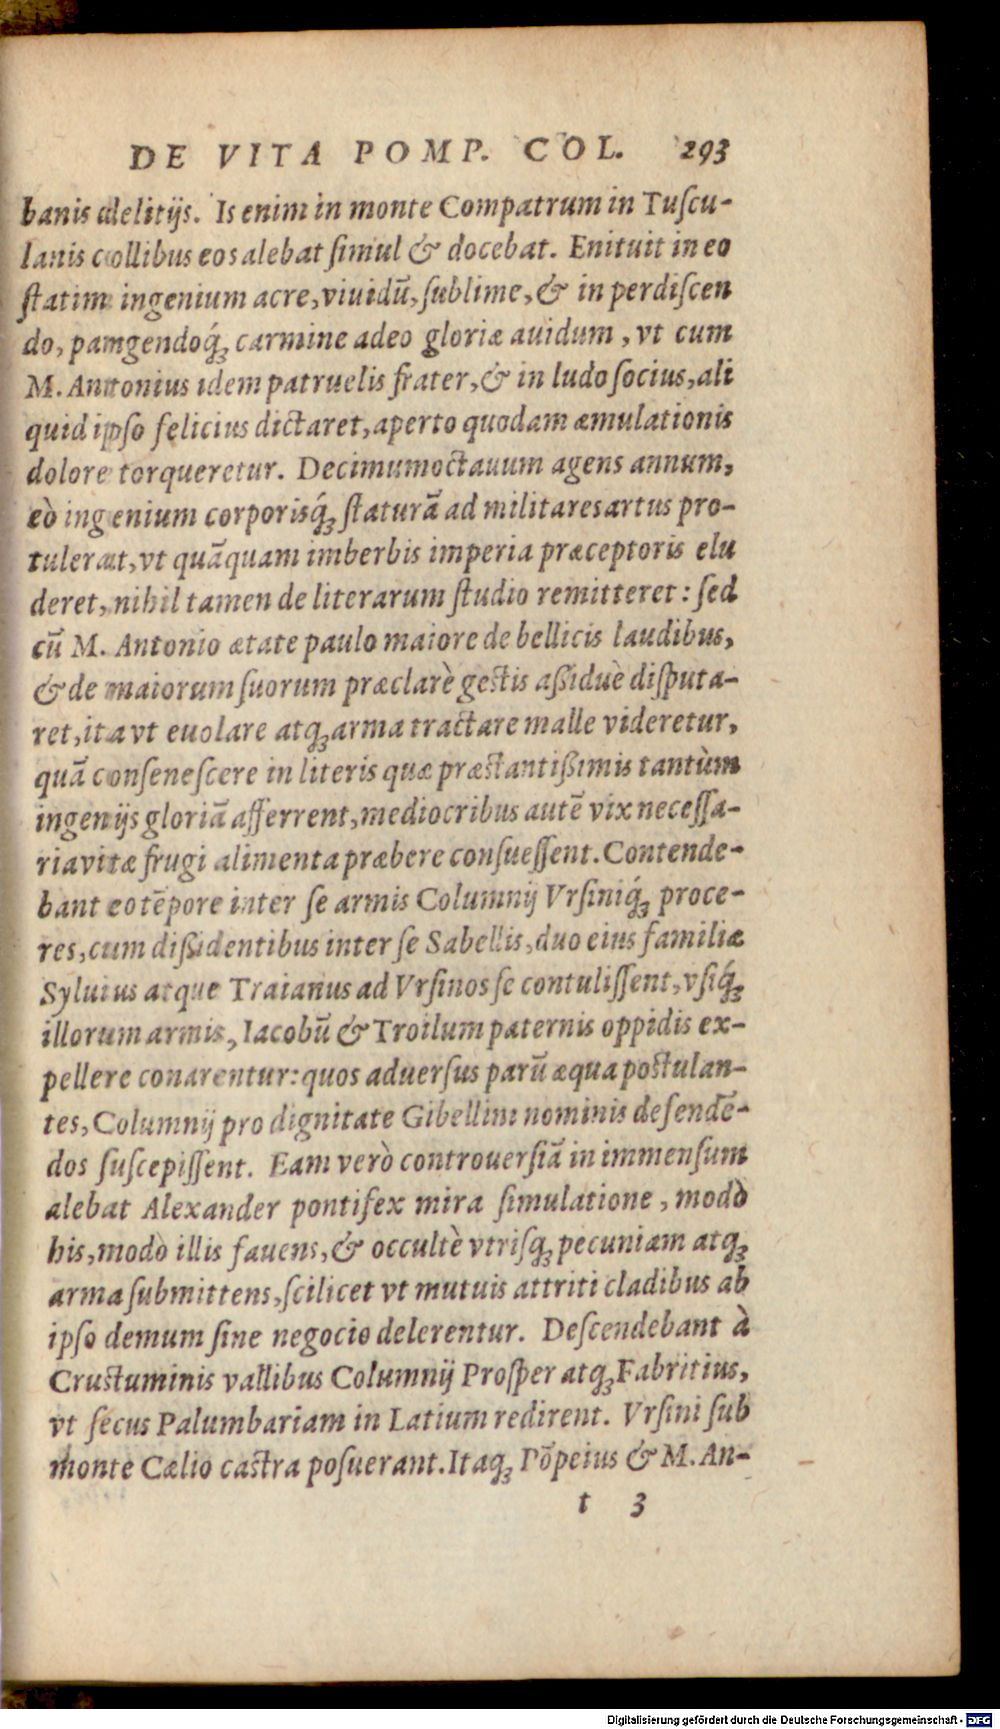 DE VITA POMP. COL. 293
banis delitijs. Is enim in monte Compatrum in Tuscu-
lanis collibus eos alebat simul & docebat. Enituit in eo
statim ingenium acre, viuidū, sublime, & in perdiscen
do, pangendoq́ꝫ carmine adeo gloriæ auidum, vt cum
M. Antonius idem patruelis frater, & in ludo socius, ali
quid ipso felicius dictaret, aperto quodam æmulationis
dolore torqueretur. Decimumoctauum agens annum,
eò ingenium corporisq́ꝫ staturā ad militares artus pro-
tulerat, vt quāquam imberbis imperia præceptoris elu
deret, nihil tamen de literarum studio remitteret: sed
cū M. Antonio ætate paulo maiore de bellicis laudibus,
& de maiorum suorum præclarè gestis aßiduè disputa-
ret, ita vt euolare atqꝫ arma tractare malle videretur,
quā consenescere in literis quæ præstantißimis tantùm
ingenijs gloriā afferrent, mediocribus autē vix necessa-
ria vitæ frugi alimenta præbere consuessent. Contende-
bant eo tēpore inter se armis Columnij Vrsiniq́ꝫ proce-
res, cum dißidentibus inter se Sabellis, duo eius familiæ
Syluius atque Traianus ad Vrsinos se contulissent, vsiq́ꝫ
illorum armis, Iacobū & Troilum paternis oppidis ex-
pellere conarentur: quos aduersus parū æqua postulan-
tes, Columnij pro dignitate Gibellini nominis defendē-
dos suscepissent. Eam verò controuersiā in immensum
alebat Alexander pontifex mira simulatione, modò
his, modò illis fauens, & occultè vtrisqꝫ pecuniam atqꝫ
arma submittens, scilicet vt mutuis attriti cladibus ab
ipso demum sine negocio delerentur. Descendebant à
Crustuminis vallibus Columnij Prosper atqꝫ Fabritius,
vt secus Palumbariam in Latium redirent. Vrsini sub
monte Cælio castra posuerant. Itaqꝫ Pōpeius & M. An-
t 3
Digitalisierung gefördert durch die Deutsche Forschungsgemeinschaft - DFG